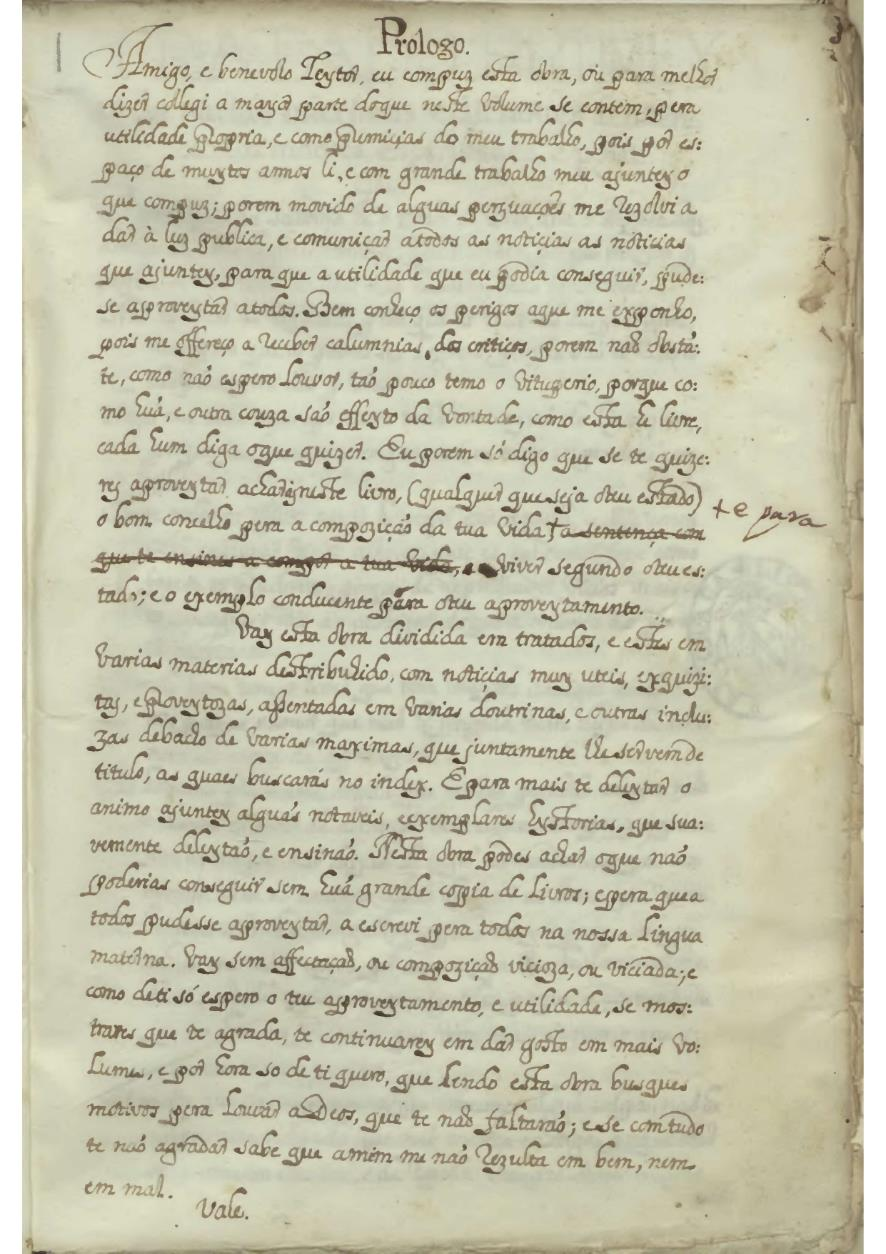 Prologo.
Amigo, e benevolo Leytor, eu compuz esta obra, ou para melhor
dizer collegi a mayor parte doque neste volume se contem, pera
utilidade propria, e como primiçias do meu trabalho, pois por es:
paço de muytos annos li, e com grande trabalho meu ajuntey o
que compuz; porem movido de alguas perzuações me rezolvi a
dar à luz publica, e comuniçar atodos as notiçias as noticias
que ajuntey, para que a utilidade que eu podia conseguir, pude:
se aproveytar atodos. Bem conheço os perigos aque me exponho,
pois me offereço a receber calumnias, dos critiços, porem naõ obstã:
te, como naõ espero Louvor, taõ pouco temo o vituperio, porque co:
mo huã, e outra couza saõ effeyto da vontade, como esta he livre,
cada hum diga oque quizer. Eu porem só digo que se te quize:
res aproveytar acharás neste livro, (qualquer que seja oteu estado) + e para
o bom concelho pera a compozição da tua vida † a sentença com
que te ensines a compor a tua vida, e viver segundo oteu es:
tado; e o exemplo conducente para oteu aproveytamento.
Vay esta obra dividida em tratados, e estes em
varias materias destribuhido, com notiçias muy uteis, exquizi:
tas, e proveytozas, assentadas em varias doutrinas, e outras inclu:
zas debacho de varias maximas, que juntamente lhe servem de
titulo, as quaes buscarás no index. E para mais te deleytar o
animo ajuntey alguãs notaveis, e exemplares hystorias, que sua:
vemente deleytaõ, e ensinaõ. Nesta obra podes achar oque naõ
poderias conseguir sem huã grande copia de Livros; e pera que a
todos pudesse aproveytar, a escrevi pera todos na nossa Lingua
materna. Vay sem affectaçaõ, ou compoziçaõ vicioza, ou viciada; e
como deti só espero o teu aproveytamento, e utilidade, se mos:
trares que te agrada, te continuarey em dar gosto em mais vo:
lumes, e por hora so de ti quero, que lendo esta obra busques
motivos pera Louvar a Deos, que te naõ faltaraõ; e se comtudo
te naõ agradar sabe que amim me naõ rezulta em bem, nem
em mal.
Vale.